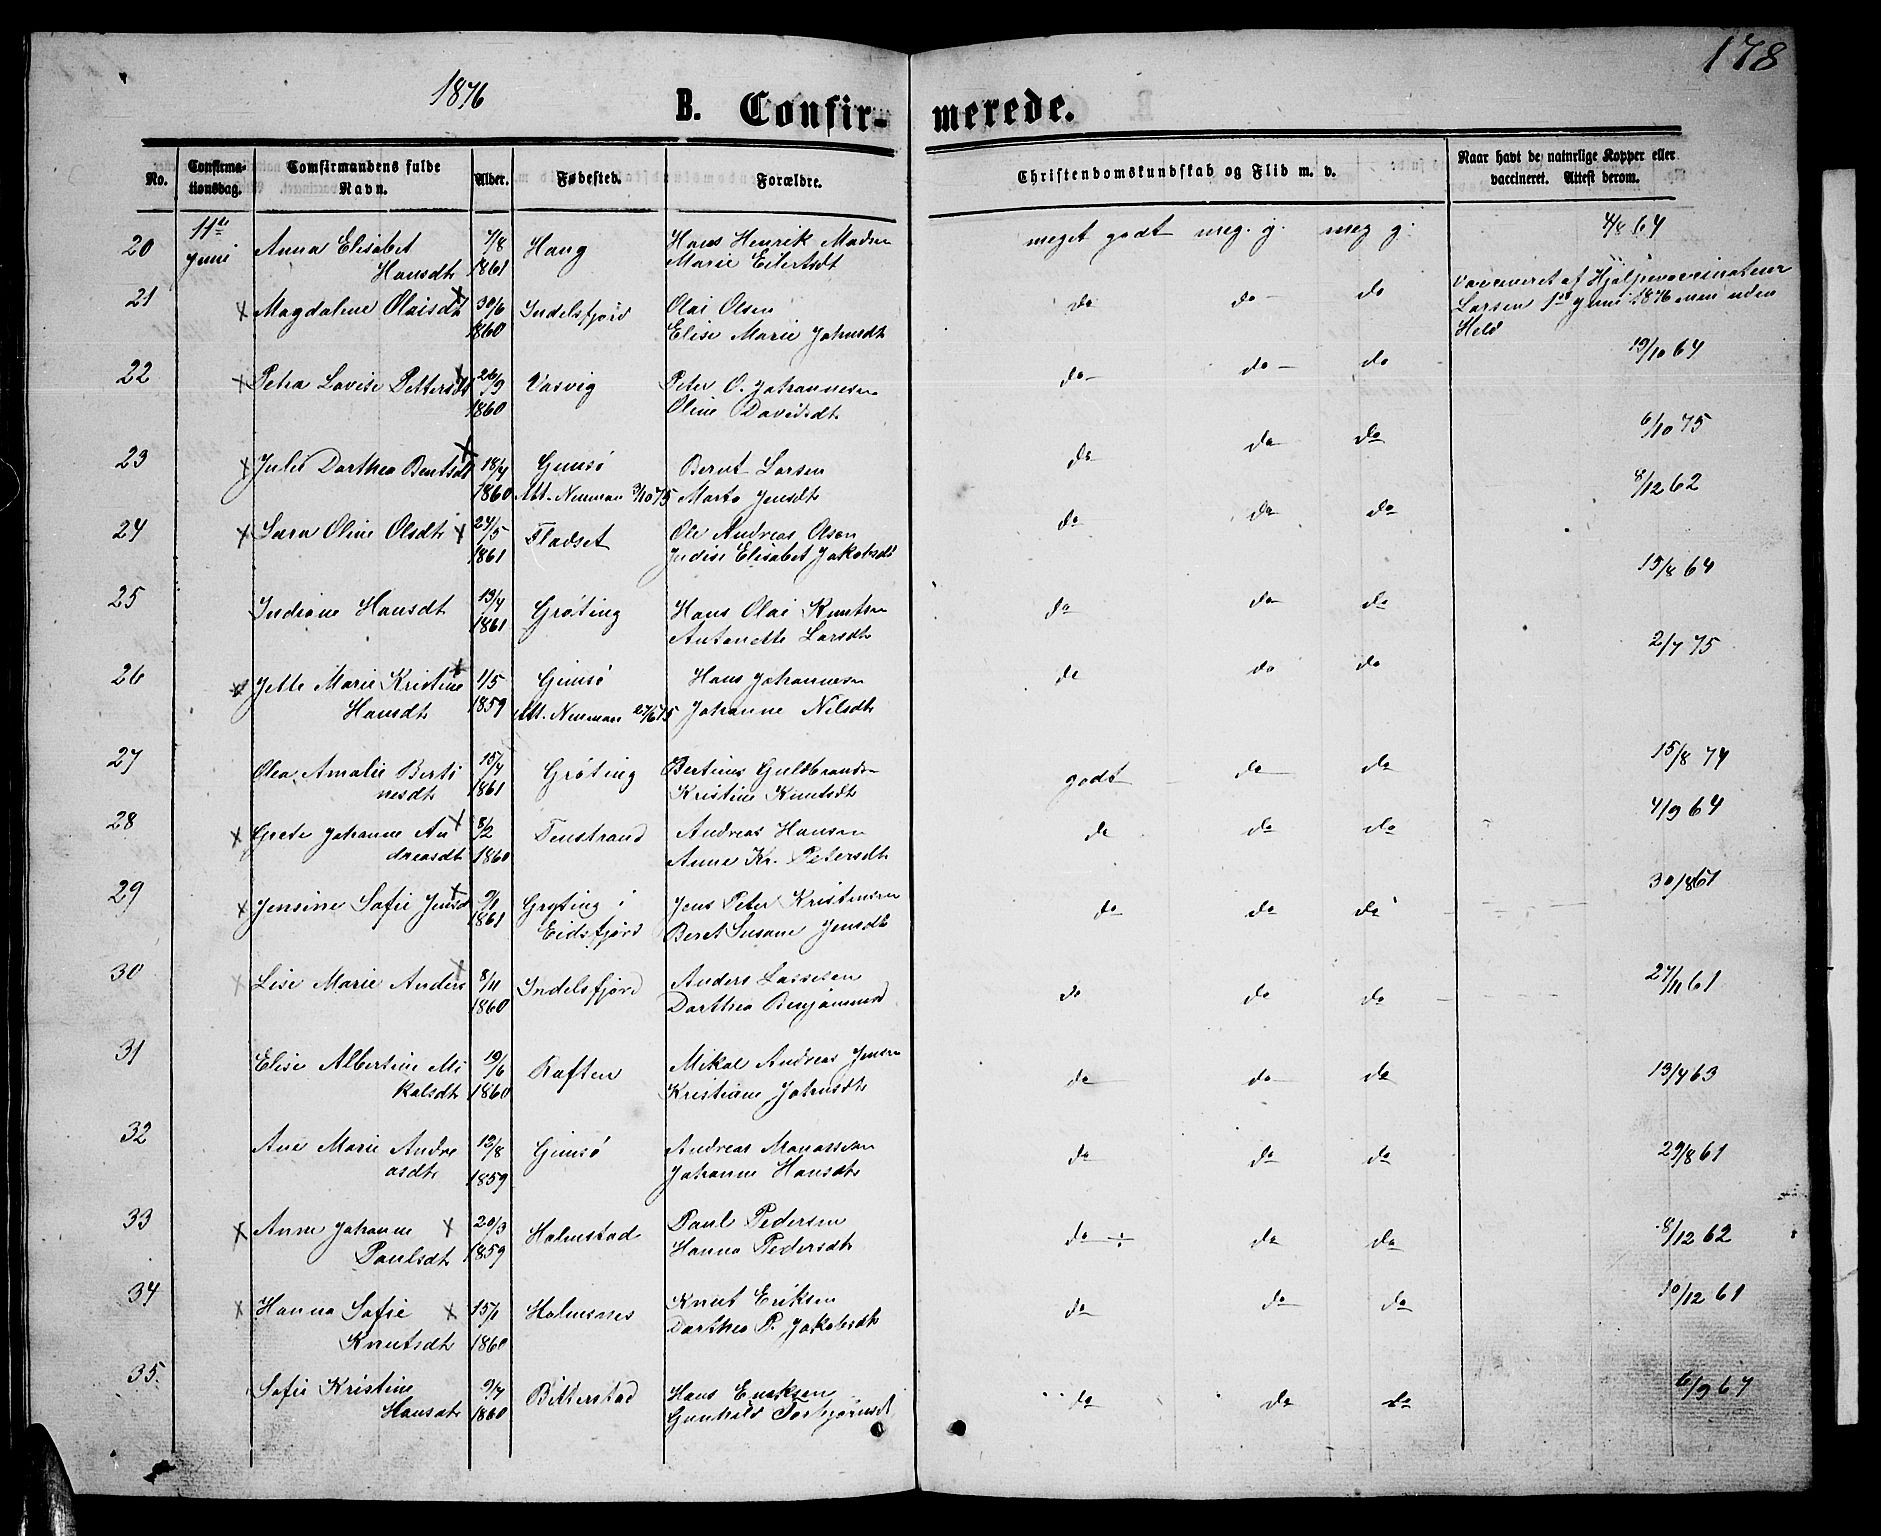 178
1876
B. Confir-
merede.
No.
Confirma-
tionsdag.
Comfirmandens fulde
Navn.
Alder.
Fødested.
Forældre.
Christendomskundskab og Flid m. v.
Naar havt de naturlige Kopper eller
vaccineret. Attest derom.
20 11te Juni Anna Elisabet Hansdtr 7/8 1861 Haug Hans Henrik Madsen Marie Eilertsdtr meget godt meg. g. meg g. 4/8 64
21 x Magdalene Olaisdtr x 30/6 1860 Indelsfjord Olai Olsen Elise Marie Johnsdtr do do do Vaccineret af Hjelpevaccinateur
Larsen 1ste Juni 1876 men uden
Held
22 x Petra Lovise Pettersdtr x 26/9 1860 Vasvig Peter O. Johannesen Oline Davidsdtr do do do 19/10 64
23 x Julie Dorthea Berntsdtr x 18/4 1860 Gimsø Att. Neuman 3/10 75 Bernt Larsen Marta Jensdtr do do do 6/10 75
24 x Sara Oline Olsdtr x 24/5 1861 Fladset Ole Andreas Olsen Elisabet Jakobsdtr do do do 8/12 62
25 Indiane Hansdtr 13/4 1861 Grøting Hans Olai Knutsen Antonette Larsdtr do do do 15/8 64
26 x Jette Marie Kristine x Hansdtr 1/5 1859 Gimsø Att. Neuman 27/6 75 Hans Johannesen Johanne Nilsdtr do do do 2/7 75
27 Olea Amalie Berti
nesdtr 15/4 1861 Grøting Bertinus Guldbrandsen Kristine Knutsdtr godt do do 15/8 74
28 x Grete Johanne An x
dreasdtr 8/2 1860 Finstrand Andreas Hansen Anne Kr. Petersdtr do do do 4/9 64
29 x Jensine Sofie Jensd x 9/1 1861 Grøting i Eidsfjord Jens Peter Kristensen Beret Susane Jensdtr do do do 30/8 61
30 x Lise Marie Anders x 8/11 1860 Indelsfjord Anders Lassesen Dorthea Benjaminsd do do do 27/11 61
31 Elise Albertine Mi
kalsdtr 19/6 1860 Raften Mikal Andreas Jensen Kristiane Johnsdtr do do do 13/4 63
32 Ane Marie Andre
asdtr 12/8 1859 Gimsø Andreas Manassesen Johanne Hansdtr do do do 29/8 61
33 x Anne Johanne x Paulsdtr 20/3 1859 Holmstad Paul Pedersen Hanna Pedersdtr do ÷ do do 8/12 62
34 x Hanna Sofie x Knutsdtr 15/1 1860 Holmsnes Knut Eriksen Dorthea P. Jakobsdtr do do do 10/12 61
35 Sofie Kristine Hansdtr 9/7 1860 Bitterstad Hans Enoksen Gunhild Torbjørnsd do do do 6/9 67